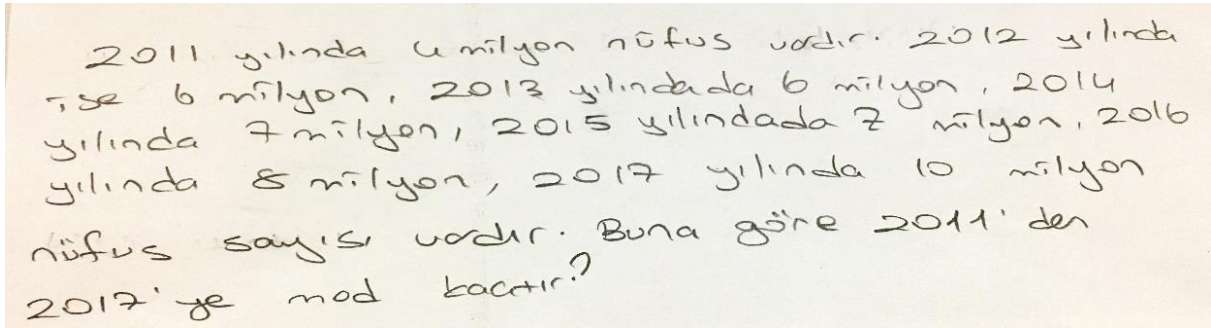 2011 yılında 4 milyon nüfus vardır. 2012 yılında
ise 6 milyon, 2013 yılındada 6 milyon, 2014
yılında 7 milyon, 2015 yılındada 7 milyon, 2016
yılında 8 milyon, 2017 yılında 10 milyon
nüfus sayısı vardır. Buna göre 2011'den
2017'ye mod kaçtır?